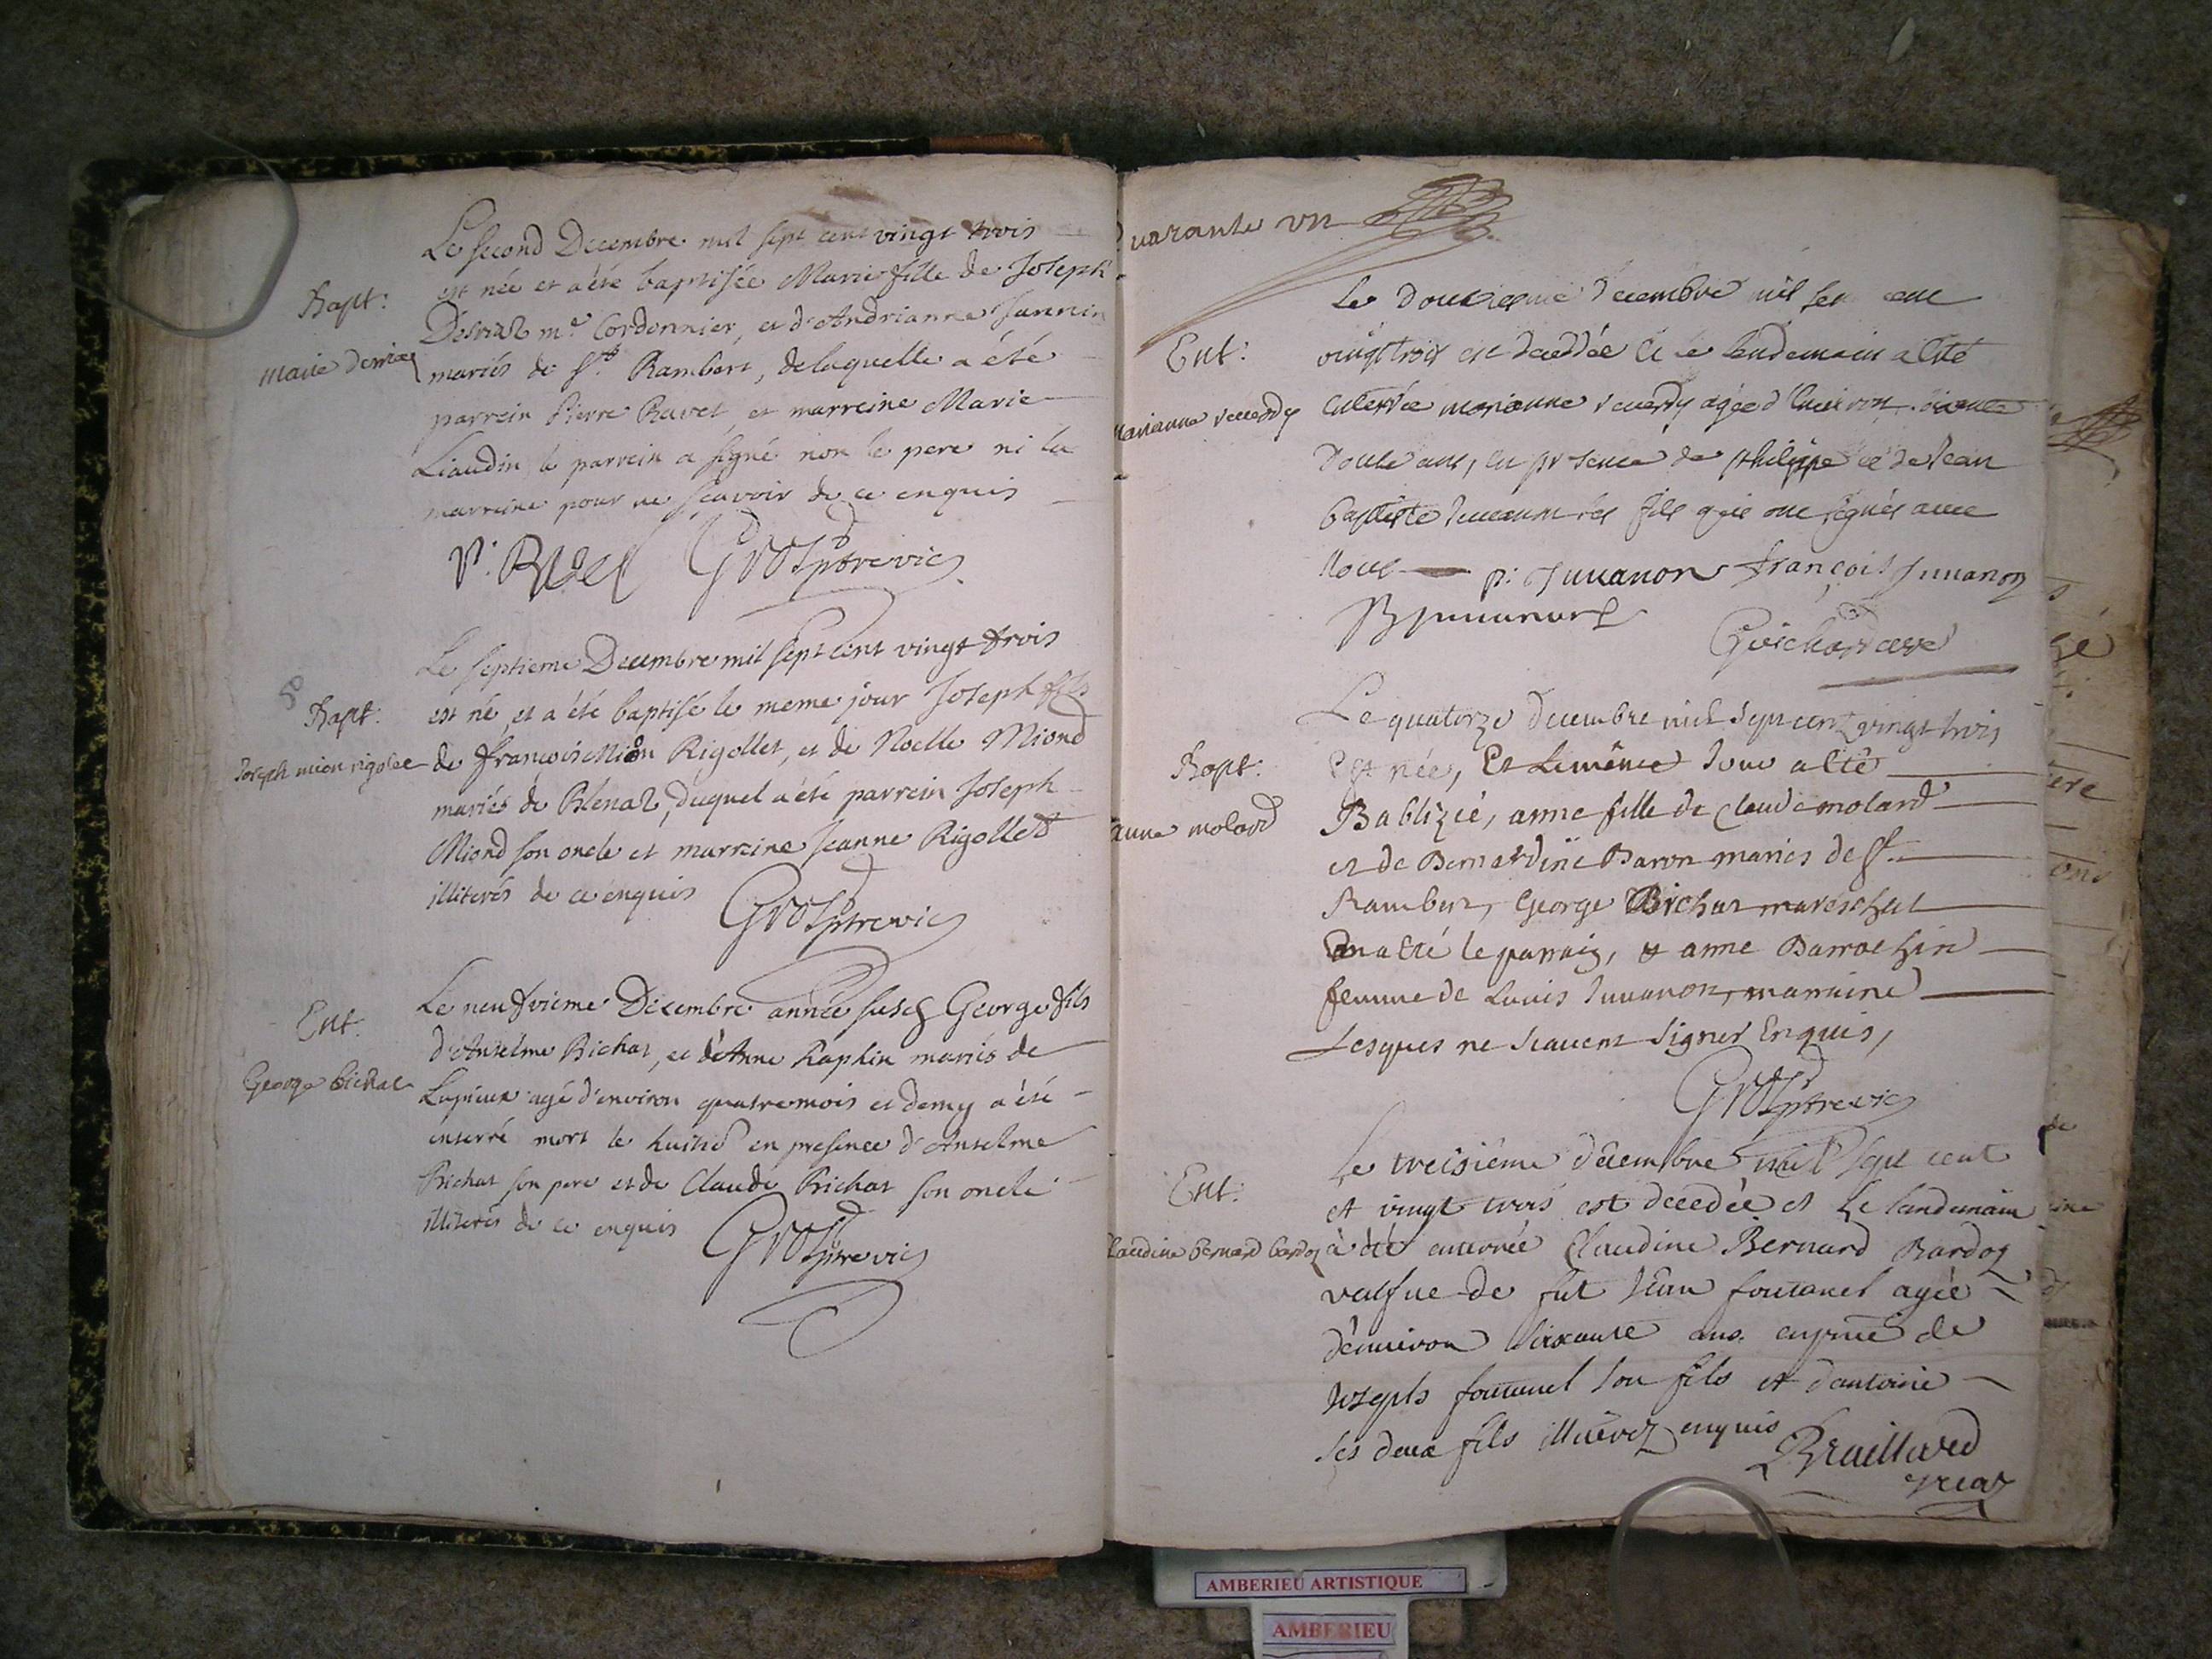 Le second Decembre mil sept cent vingt trois
Bapt: est née et a été baptisée Marie fille de Joseph
Dervaz m.e Cordonnier, et d'Andrianne Jannin
marie dervaz mariés de St. Rambert, de laquelle a été
parrein Pierre Ravet, et marreine Marie
Liaudin, le parrein a signé non le pere ni la
marreine pour ne scavoir de ce enquis
P. Ravet Gros ptre vic
Le septieme Decembre mil sept cent vingt trois
Bapt: est né, et a été baptisé le meme jour Joseph fils
Joseph mion rigolet de francois Mion Rigollet, et de Noelle Miond
mariés de Blenaz, duquel a été parrein Joseph
Miond son oncle et marreine Jeanne Rigollet
illiterés de ce enquis Gros ptre vic
Le neufvieme Decembre année susd. George fils
Ent. d'Anselme Bichat, et d'Anne Raphin mariés de
George bichat Lupieux agé d'environ quatre mois et demy a été
enterré mort le huitie en presence d'Anselme
Bichat son pere et de Claude Bichat son oncle
illiterés de ce enquis Gros ptre vic
quarante un
Le douziesme decembre mil sept cent
Ent: vingt trois est decedée et le lendemain a été
marianne enterrée marianne agée d'environ
douze ans, en presence de philippe et de Jean
baptiste Juvanon ses fils qui ont signés avec
nous p: Juvanon françois Juvanon
B Juvanon Guichard cure
Le quatorze decembre mil sept cent vingt trois
Bapt: Est née, Et Le même Jour a été
anne molard Bablizée, anne fille de Claude molard
et de Bernardine Baron mariés de St.
Rambert, George Bichat mareschal
en a été le parrain, & anne Barrochin
femme de Louis Juvanon, marraine
Lesques ne scavent signer Enquis,
Gros ptre vic
Le treisiéme décembre mil sept cent
Ent: et vingt trois est decedée et le landemain
Claudine bernard bardoz a été enterrée Claudine Bernard Bardoz
vesfue de fut Jean fontanel agée
d'environ soixante ans en pnce de
Joseph fontanel son fils et d'antoine
ses deux fils illiterez enquis Brailliard
vicar
AMBERIEU ARTISTIQUE
AMBERIEU